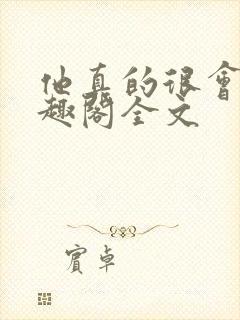 他真的很會
趣閣全文
賓卓